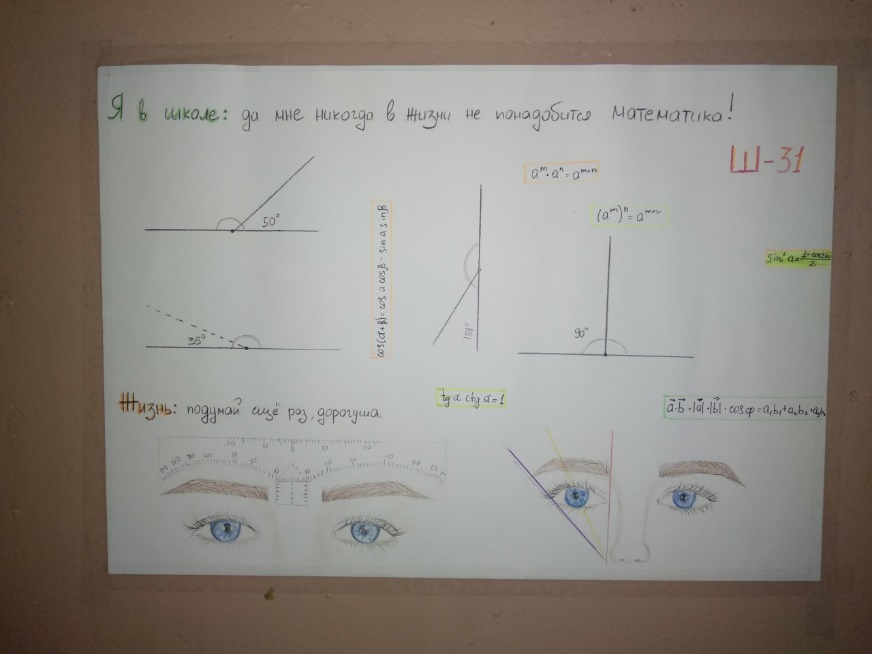 Я в школе: да мне никогда в жизни не понадобится математика!
Ш-31
aᵐ·aⁿ=aᵐ⁺ⁿ
50°
(aᵐ)ⁿ=aᵐⁿ
cos(α+β)=cos α cosβ - sin α sinβ
sin²α=
35°
90°
tg α ctg α=1
Жизнь: подумай ещё раз, дорогуша.
a⃗·b⃗=|a⃗|·|b⃗|·cos φ=a₁b₁+a₂b₂+a₃b₃